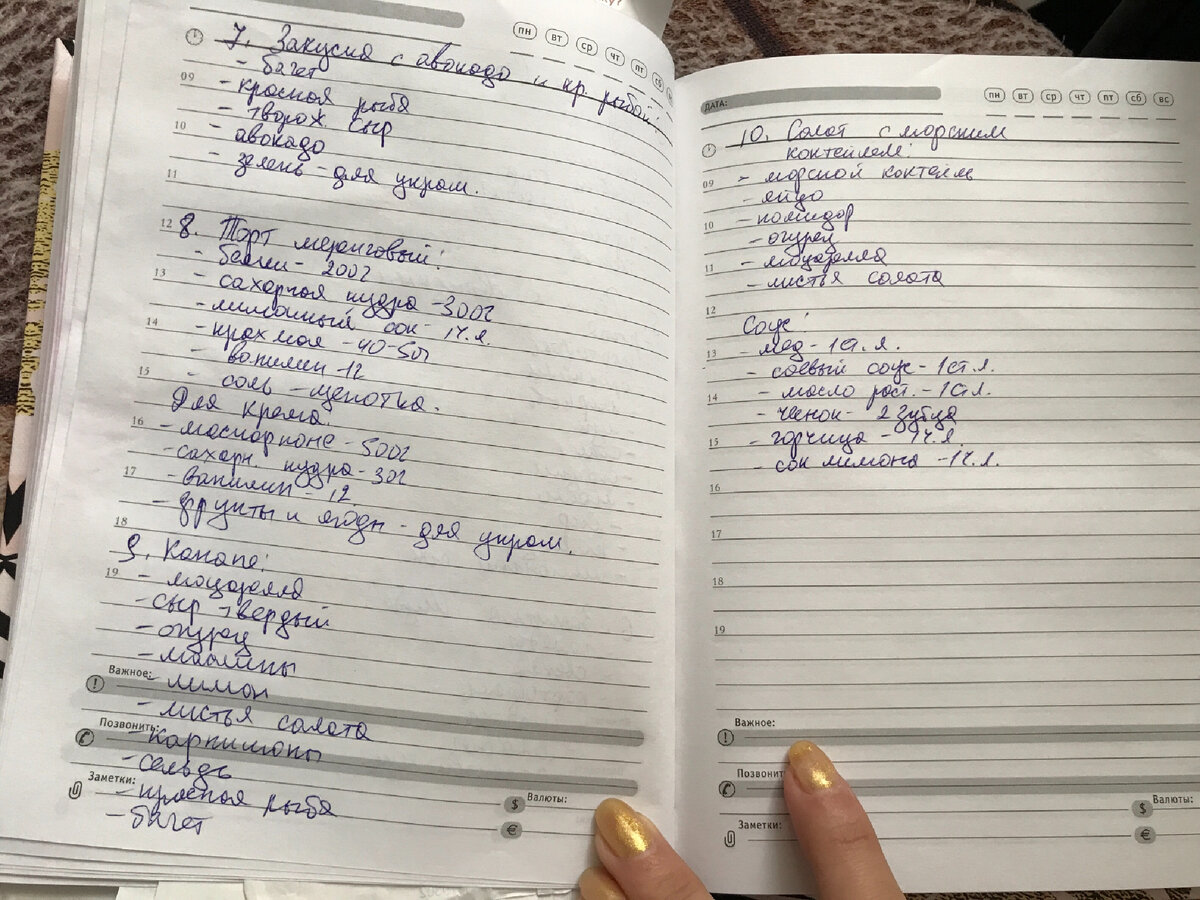 пн вт ср чт пт сб
7. Закуска с авокадо и кр. рыбой:
- багет
09
- красная рыба
- творож. сыр
10
- авокадо
- зелень - для украш.
11
12
8. Торт меренговый:
- белки - 200г
13
- сахарная пудра - 300г
- лимонный сок - 1ч.л.
14
- крахмал - 40-50г
- ванилин - 1г
15
- соль - щепотка.
Для крема.
16
- маскарпоне - 500г
- сахарн. пудра - 30г
17
- ванилин - 1г
- фрукты и ягоды - для украш.
18
9. Канапе:
19
- моцарелла
- сыр твердый
- огурец
- маслины
Важное:
- лимон
- листья салата
Позвонить:
- карпишоны
- сельдь
Заметки:
- красная рыба
- багет
Валюты:
$
€
ДАТА:
пн вт ср чт пт сб вс
10. Салат с морским
коктейлем:
09
- морской коктейль
- яйцо
- помидор
10
- огурец
- моцарелла
11
- листья салата
12
Соус:
13
- мед - 1ст.л.
- соевый соус - 1ст.л.
14
- масло раст. - 1ст.л.
- чеснок - 2 зубца
15
- горчица - 1ч.л.
- сок лимона - 1ч.л.
16
17
18
19
Важное:
Заметки:
Валюты:
$
€